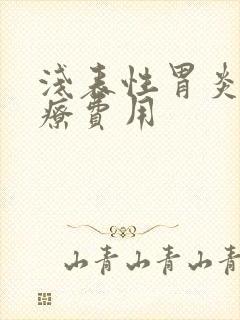 浅表性胃炎
療費用
山青山青山青